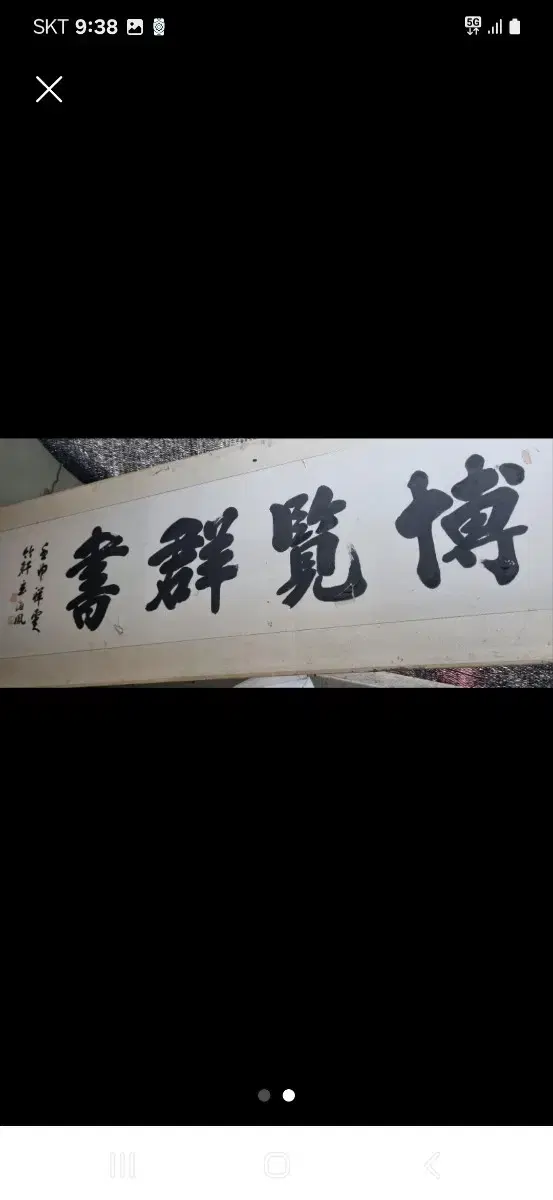 SKT 9:38
5G
博覽群書
壬申祥雲
竹軒